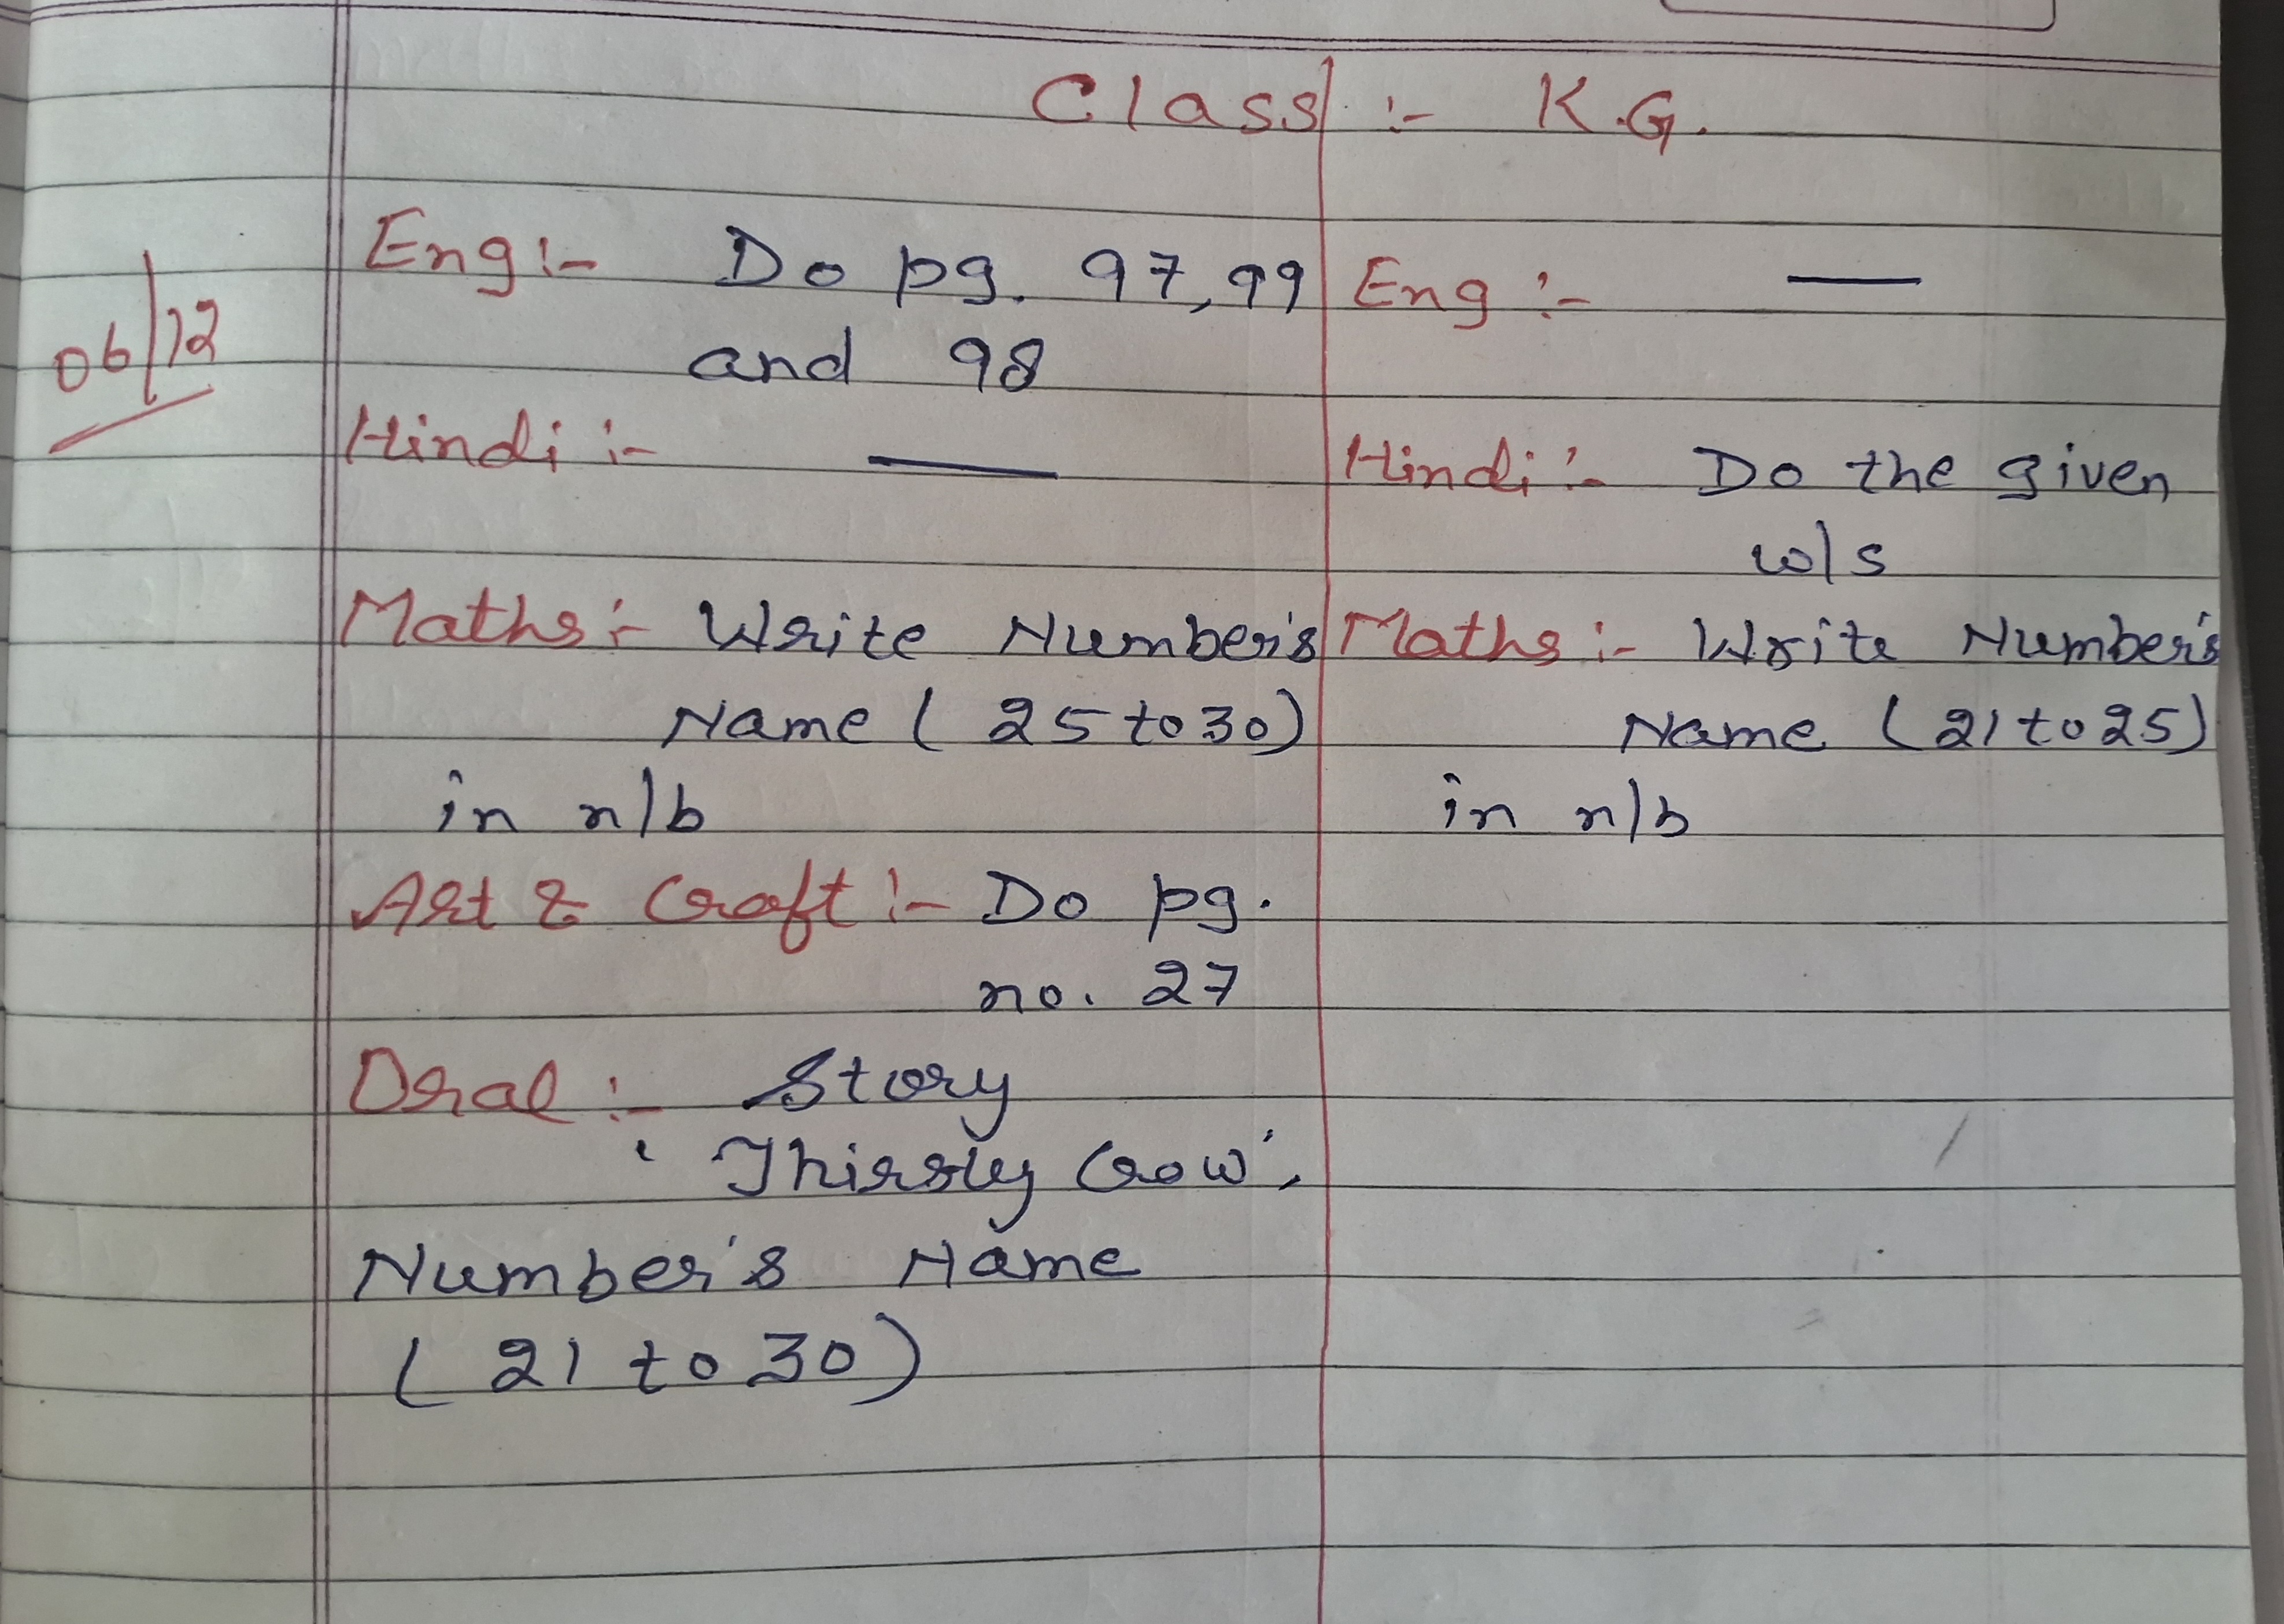 Class :- K.G.
06/12
Eng :- Do pg. 97, 99
and 98
Hindi :- —
Maths :- Write Number's
Name ( 25 to 30)
in n/b
Art & Craft :- Do pg.
no. 27
Oral :- Story
' Thirsty Crow',
Number's Name
( 21 to 30)
Eng :- —
Hindi :- Do the given
w/s
Maths :- Write Number's
Name (21 to 25)
in n/b